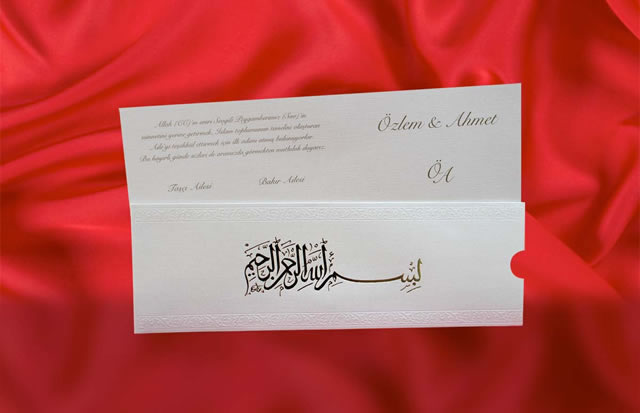 Allah (CC)'ın emri Sevgili Peygamberimiz (Sav)'in
sünnetini yerine getirmek, İslam toplumunun temelini oluşturan
Aile'yi teşekkül ettirmek için ilk adımı atmış bulunuyorlar.
Bu büyük günde sizleri de aramızda görmekten mutluluk duyarız.
Özlem & Ahmet
Taşçı Ailesi
Bakır Ailesi
ÖA
بِسْمِ اللهِ الرَّحْمٰنِ الرَّحِيْمِ